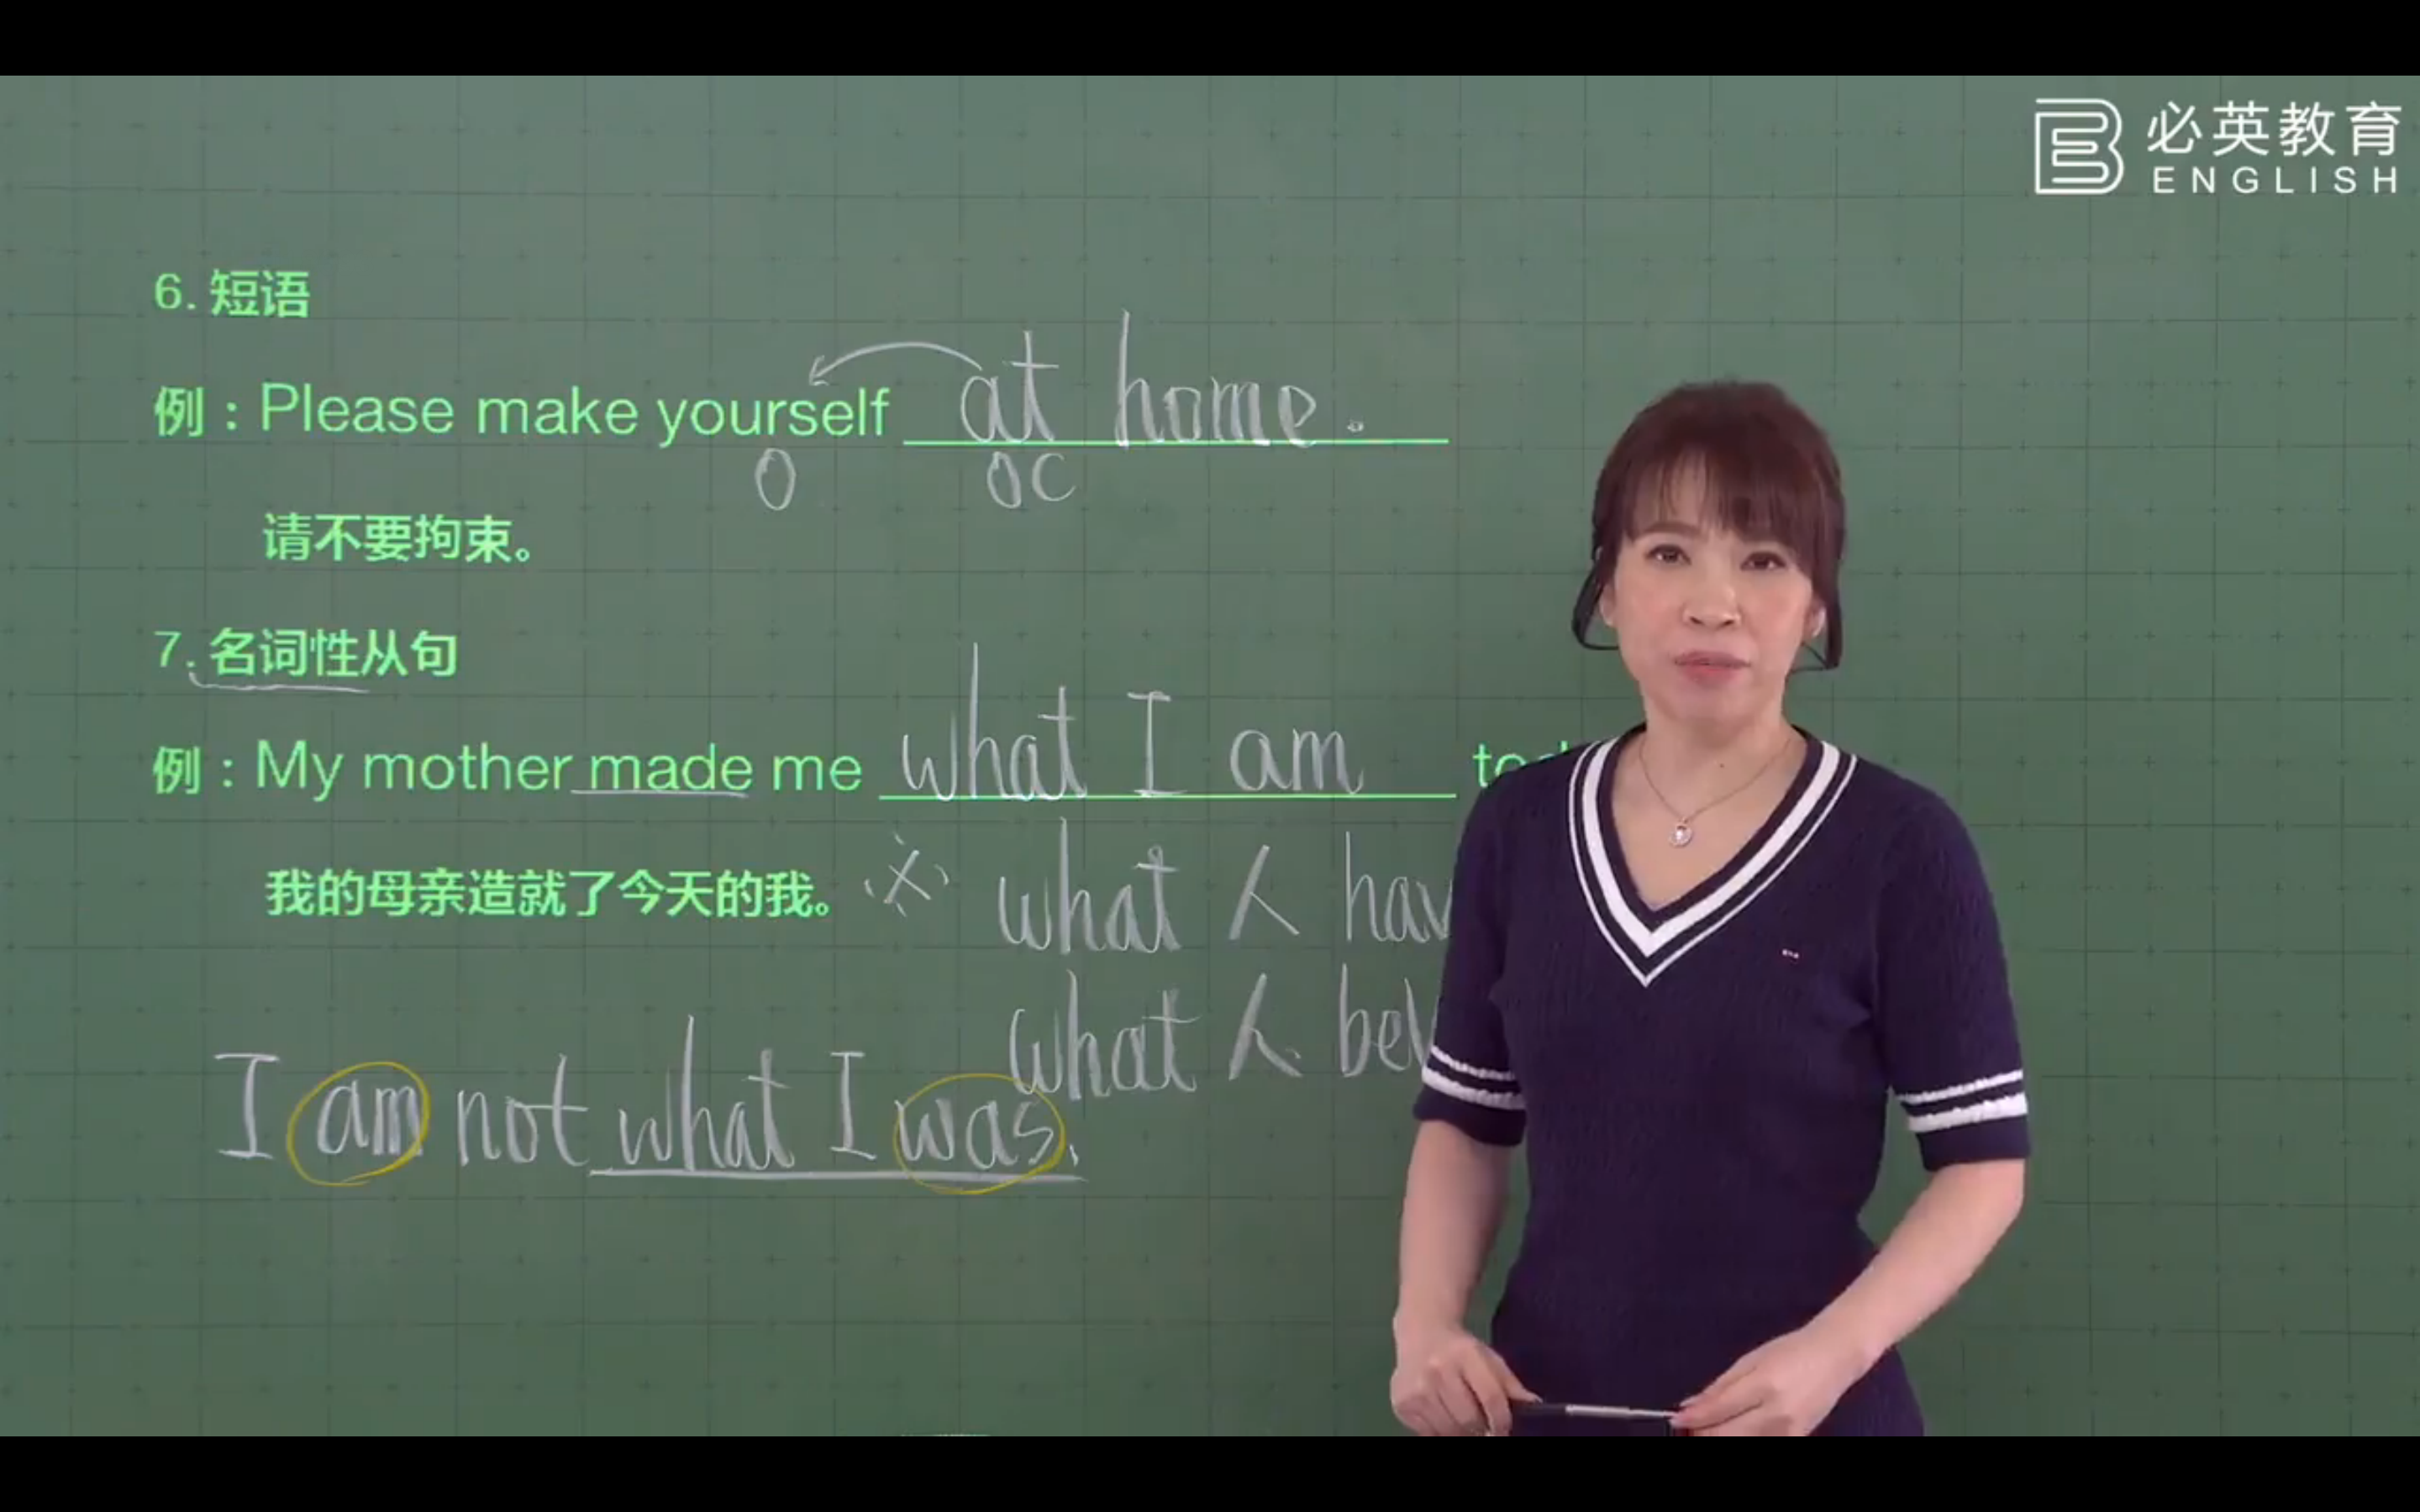 必英教育
ENGLISH
6. 短语
例：Please make yourself at home.
O OC
请不要拘束。
7. 名词性从句
例：My mother made me what I am
我的母亲造就了今天的我。
※ what 人
what 人
I am not what I was.